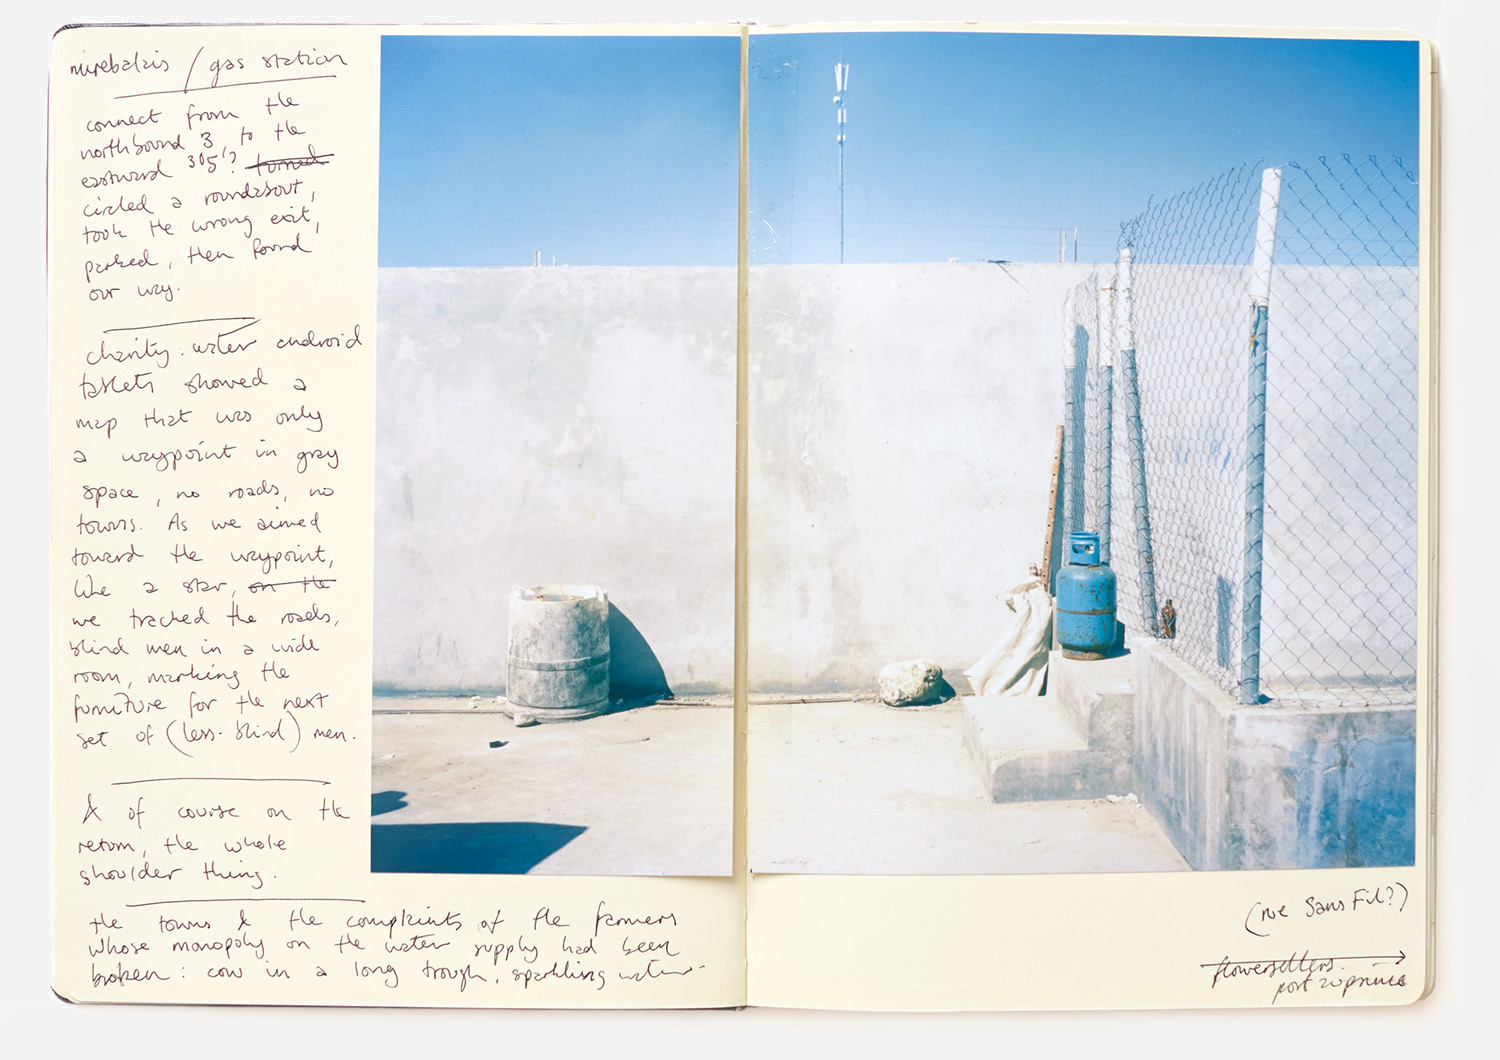 mirebalais / gas station
connect from the
northbound 3 to the
eastward 305'? turned
circled a roundabout,
took the wrong exit,
parked, then found
our way.
charity: water android
tablets showed a
map that was only
a waypoint in gray
space, no roads, no
towns. As we aimed
toward the waypoint,
like a star, on the
we tracked the roads,
blind men in a wide
room, marking the
furniture for the next
set of (less-blind) men.
& of course on the
return, the whole
shoulder thing.
the towns & the complaints of the farmers
whose monopoly on the water supply had been
broken: cow in a long trough, sparkling water-
(rue Sans Fil?)
flowersellers.
port au prince